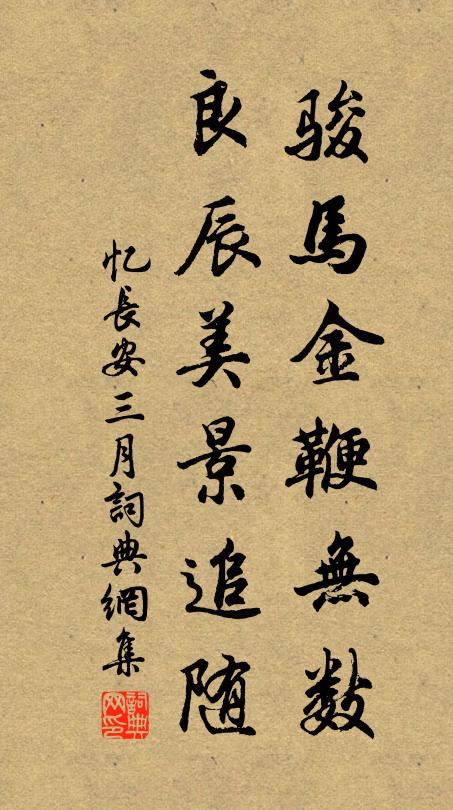 骏馬金鞭無数
良辰美景追随
忆長安三月詞典網集
詞典网印